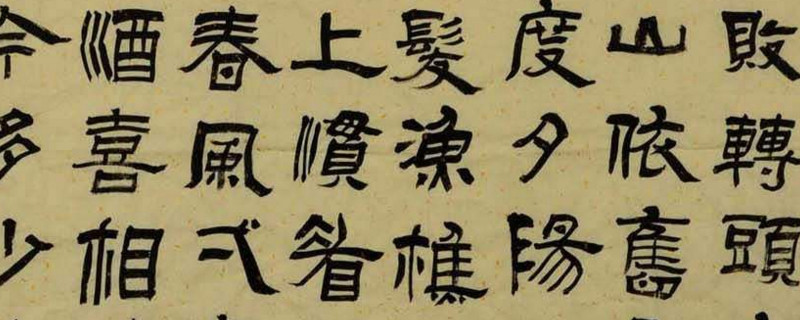 敗轉頭
山依舊
度夕陽
髮漁樵
上慣看
春風弌
酒喜相
今多少